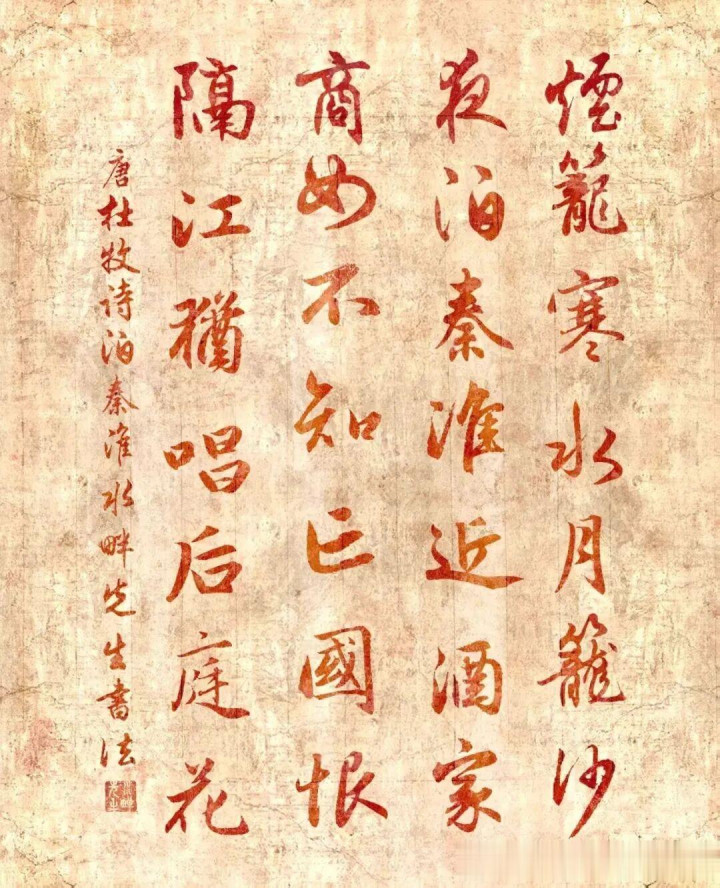 煙籠寒水月籠沙
夜泊秦淮近酒家
商女不知亡國恨
隔江猶唱后庭花
唐杜牧诗泊秦淮水畔先生書法